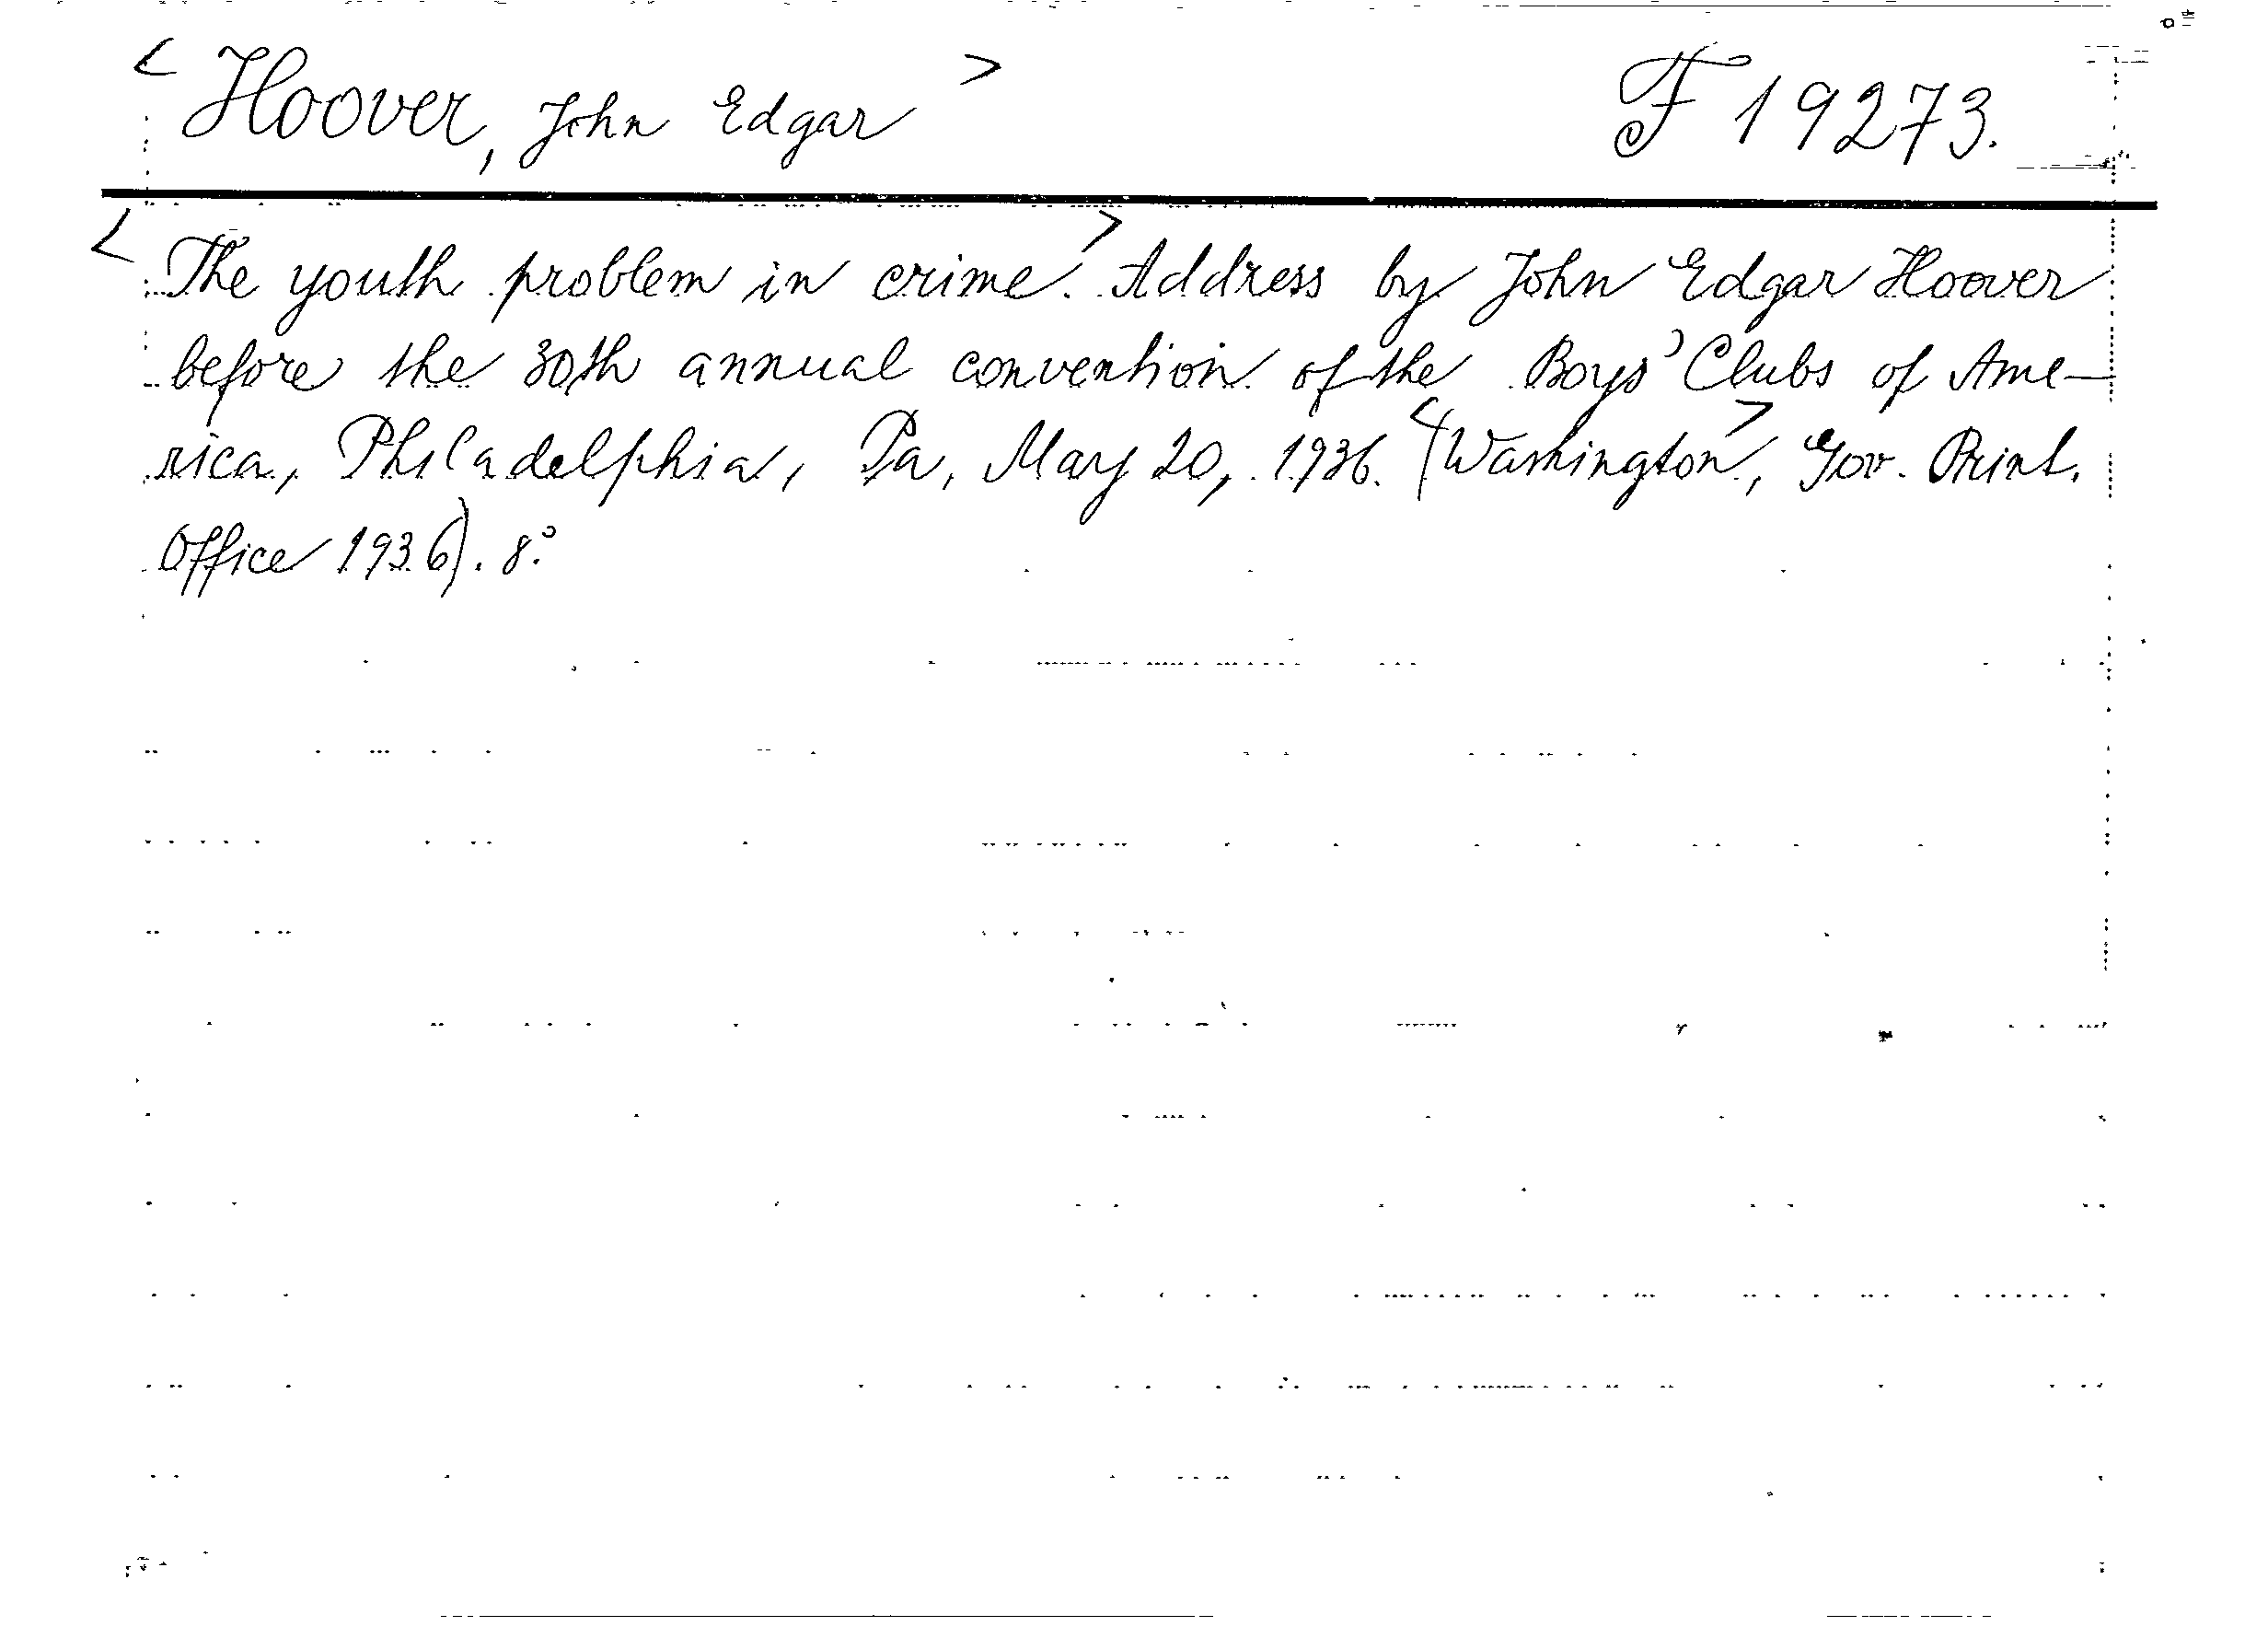 <Hoover, John Edgar> F 19273.
<The youth problem in crime.> Address by John Edgar Hoover
before the 30th annual convention of the Boys' Clubs of Ame-
rica, Philadelphia, Pa, May 20, 1936. (<Washington>, Gov. Print.
Office 1936). 8°.